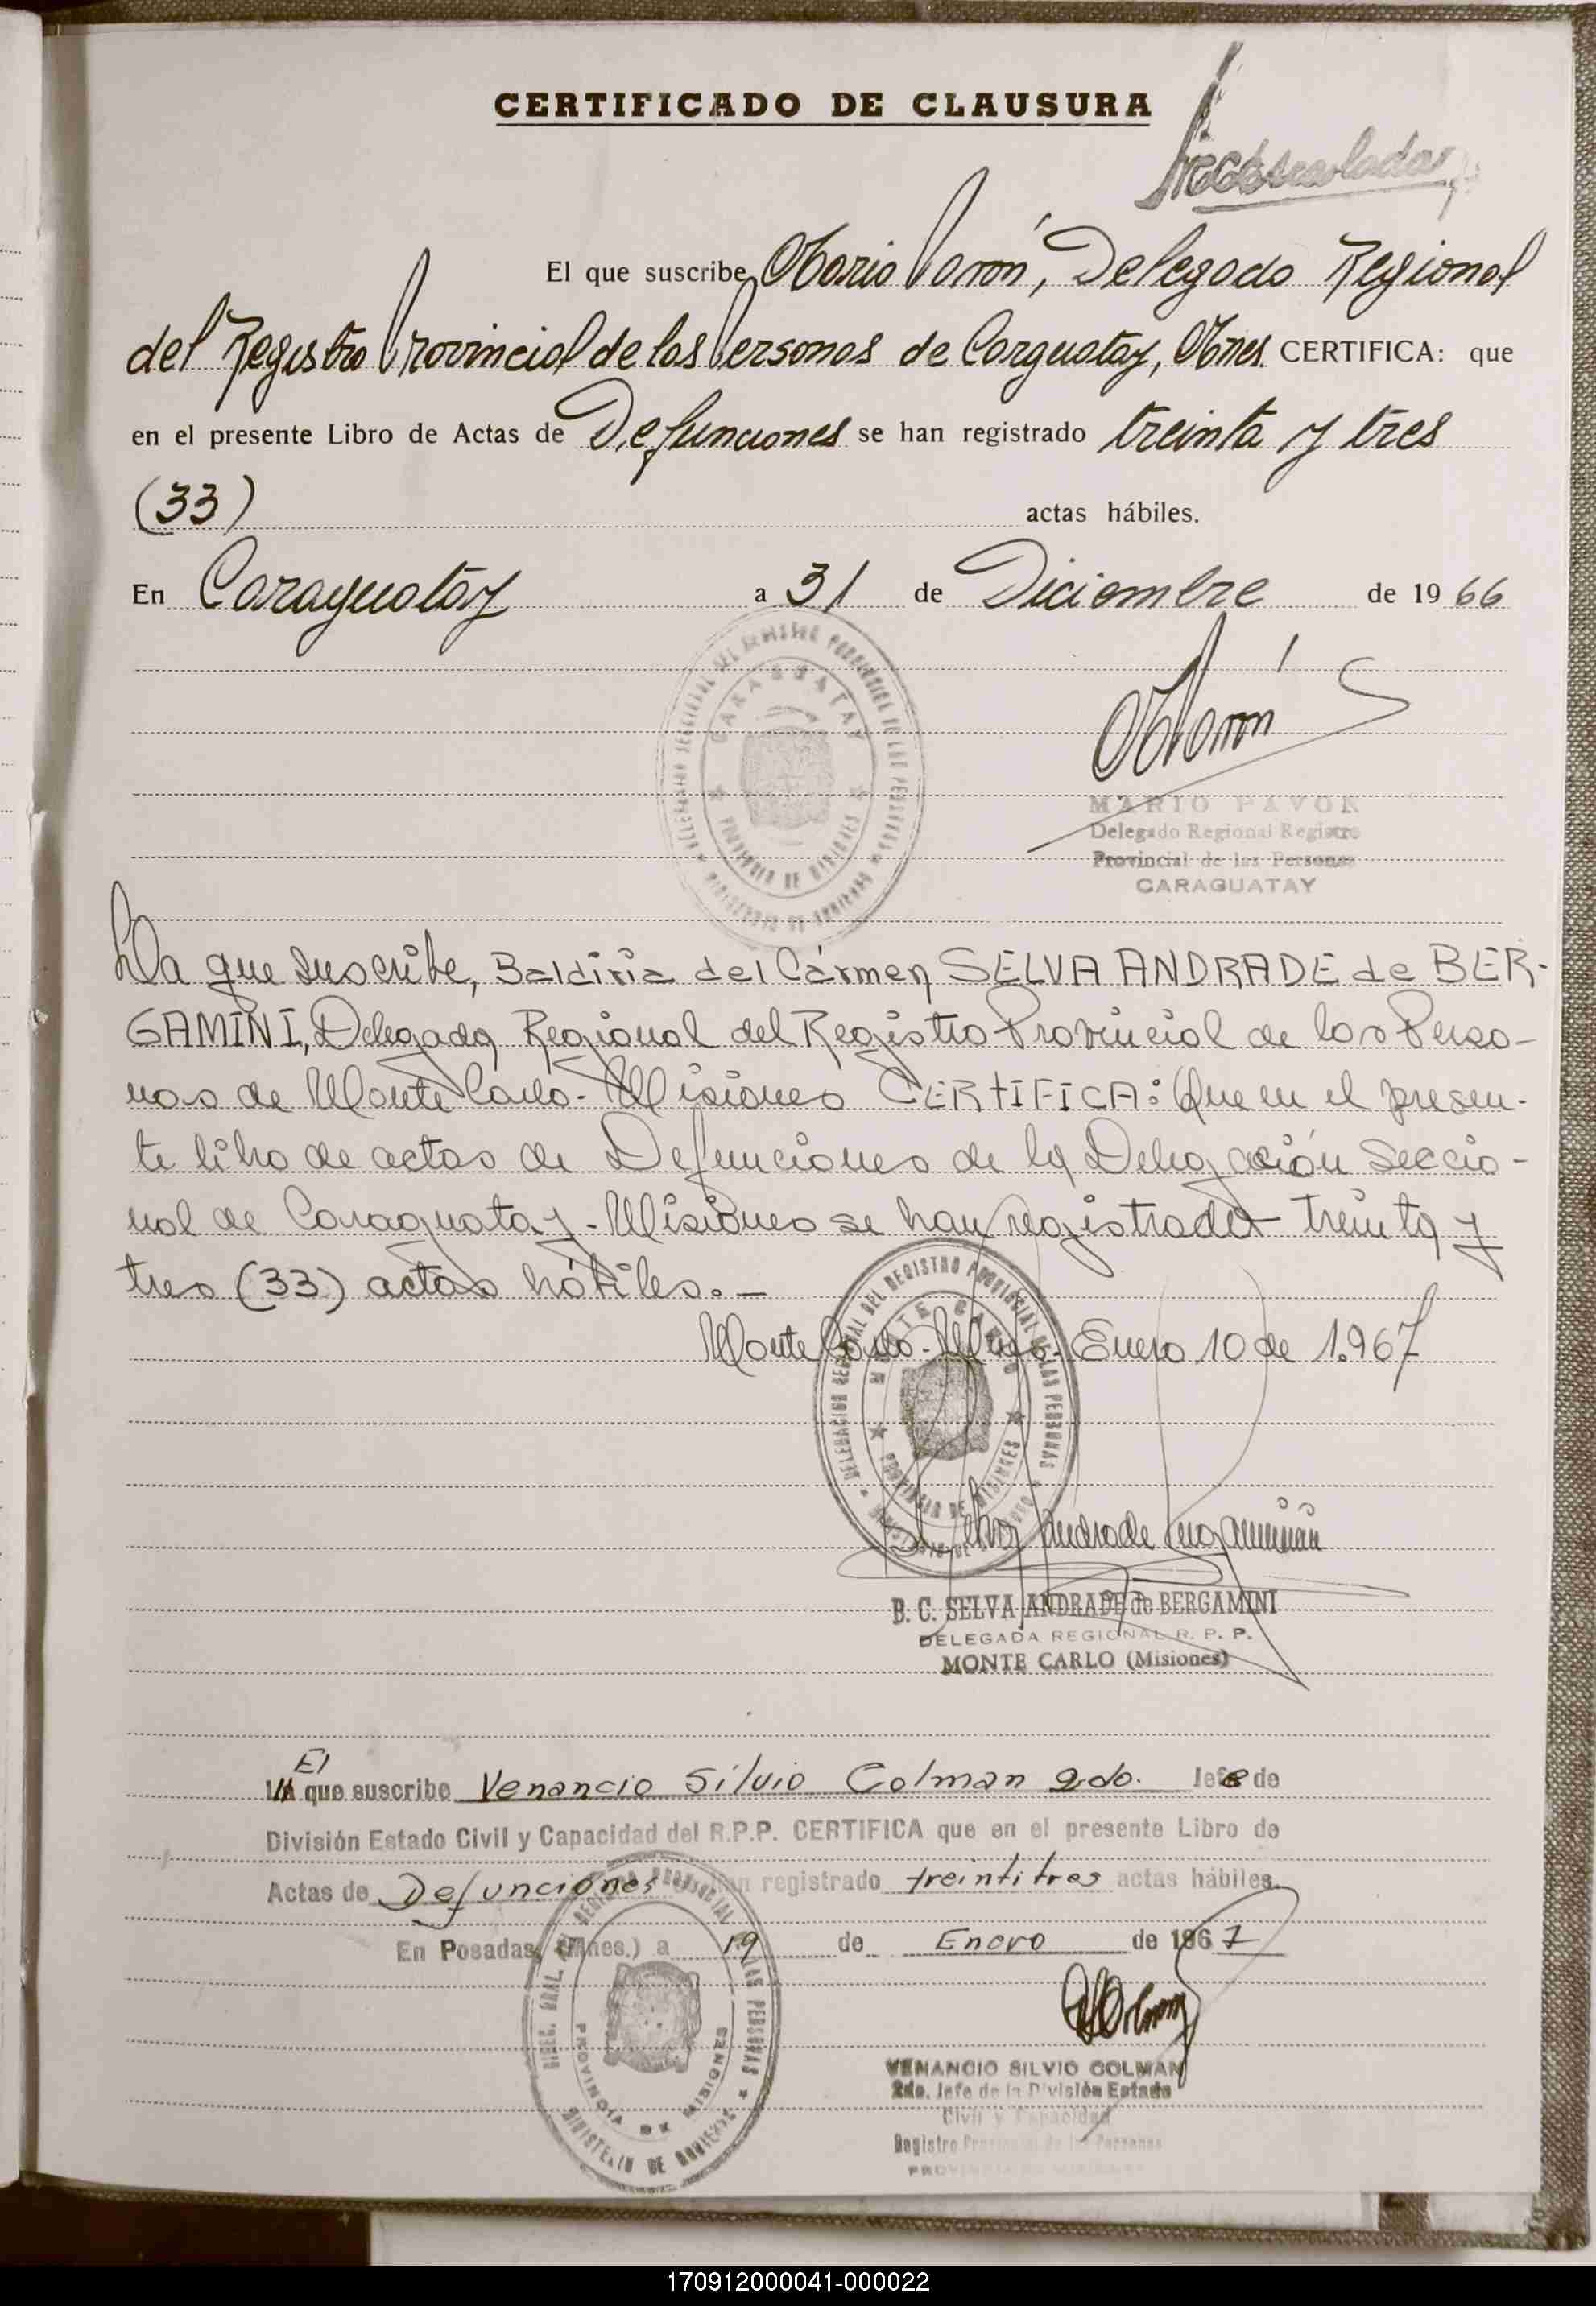 CERTIFICADO DE CLAUSURA
El que suscribe, Mario Pavón, Delegado Regional
del Registro Provincial de las Personas de Carguatay, Mnes. CERTIFICA: que
en el presente Libro de Actas de Defunciones se han registrado treinta y tres
(33) actas hábiles.
En Caraguatay a 31 de Diciembre de 1966
CARAGUATAY
PROVINCIA DE MISIONES
MARIO PAVON
Delegado Regional Registro
Provincial de las Personas
CARAGUATAY
La que suscribe, Baldiria del Cármen SELVA ANDRADE de BER-
GAMINI, Delegada Regional del Registro Provincial de las Perso-
nas de Monte Carlo - Misiones CERTIFICA: Que en el presen-
te libro de actas de Defunciones de la Delegación Seccio-
nal de Caraguatay - Misiones se han registrado treinta y
tres (33) actas hábiles. -
Monte Carlo - Mnes - Enero 10 de 1.967
DELEGACION REGIONAL DEL REGISTRO PROVINCIAL DE LAS PERSONAS
MONTE CARLO
PROVINCIA DE MISIONES
B. C. SELVA ANDRADE de BERGAMINI
DELEGADA REGIONAL R. P. P.
MONTE CARLO (Misiones)
El
que suscribe Venancio Silvio Colman 2do. Jefe de
División Estado Civil y Capacidad del R.P.P. CERTIFICA que en el presente Libro de
Actas de Defunciones se han registrado treintitres actas hábiles.
En Posadas, (Mnes.) a 19 de Enero de 1967
PROVINCIA DE MISIONES
MINISTERIO DE GOBIERNO
VENANCIO SILVIO COLMAN
2do. Jefe de la División Estado
Civil y Capacidad
Registro Provincial de las Personas
170912000041-000022